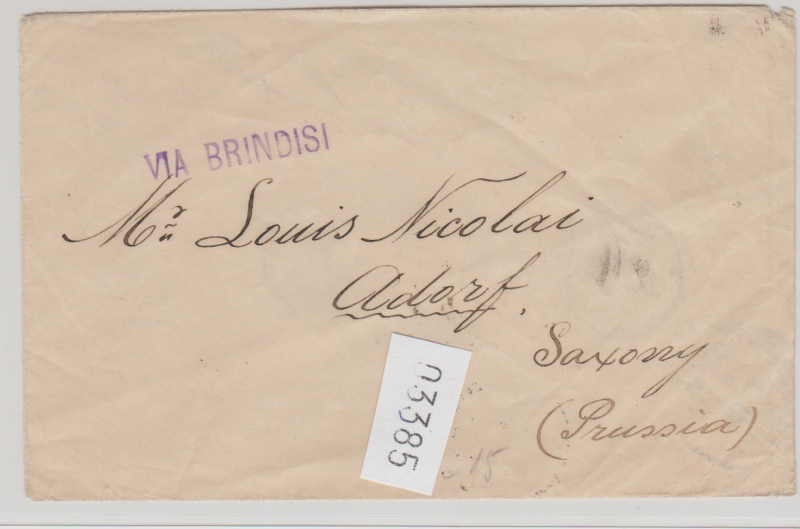 VIA BRINDISI
Mr. Louis Nicolai
Adorf.
Saxony
(Prussia)
03385
15